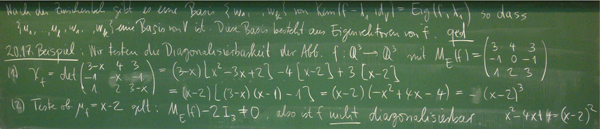 Nach der Zwischenbeh. gibt es eine Basis {w₁, .., wₖ} von Kern(f - λ₁ id_V) = Eig(f, λ₁) so dass
{u₁, .., uₛ, w₁, .., wₖ} eine Basis von V ist. Diese Basis besteht aus Eigenvektoren von f. qed
20.17. Beispiel. Wir testen die Diagonalisierbarkeit der Abb. f: ℚ³ → ℚ³ mit M_E(f) = (3 4 3; -1 0 -1; 1 2 3)
(1) χ_f = det(3-x 4 3; -1 -x -1; 1 2 3-x) = (3-x)[x²-3x+2] - 4[x-2] + 3[x-2]
= (x-2)[(3-x)(x-1) - 1] = (x-2)(-x²+4x-4) = -(x-2)³
(2) Teste ob μ_f = x-2 gilt: M_E(f) - 2I₃ ≠ 0, also ist f nicht diagonalisierbar. x²-4x+4 = (x-2)²